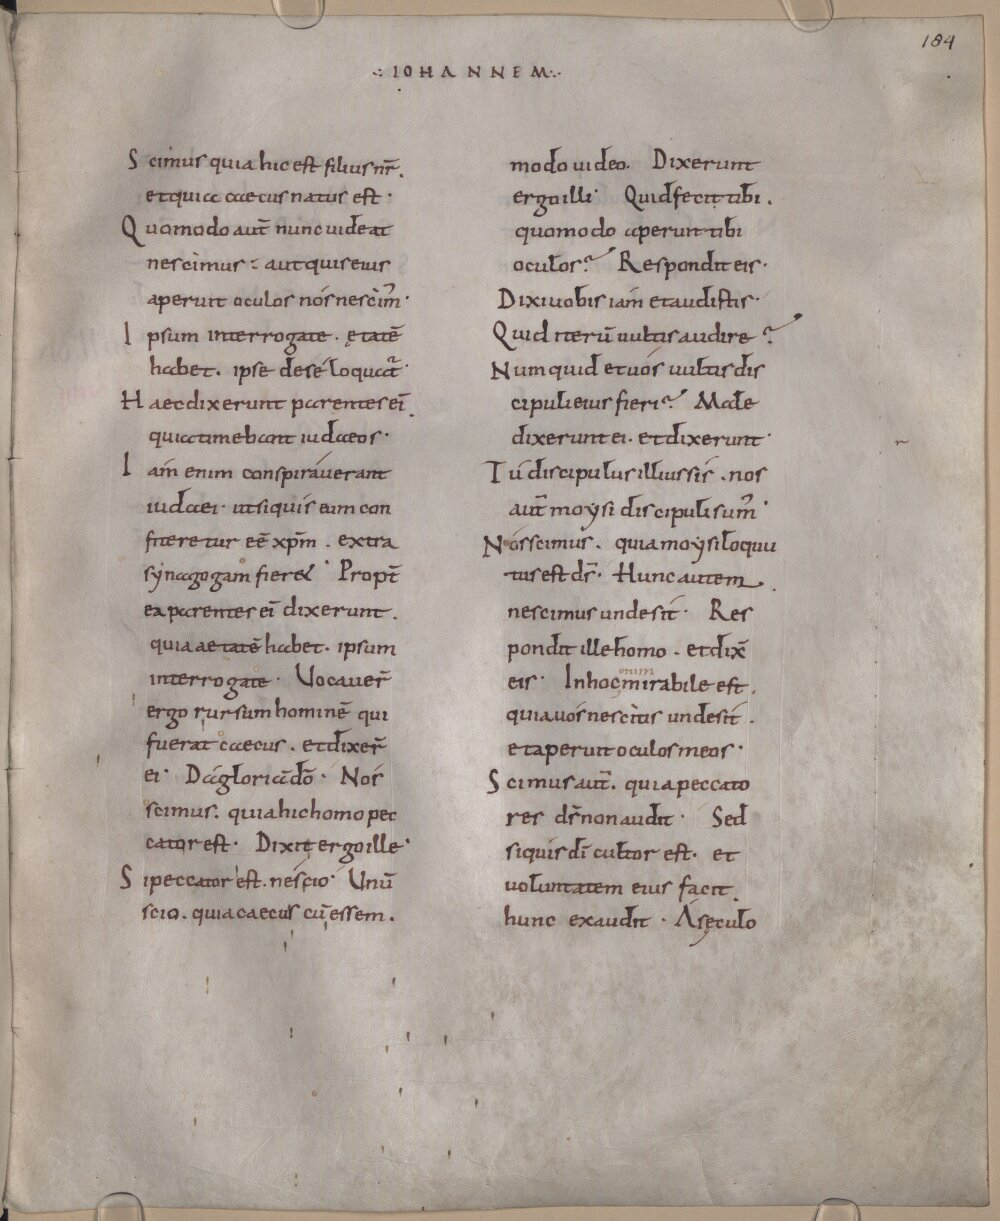 184
·:IOHANNEM:·
Scimus quia hic est filius nr̃.
et quia caecus natus est·
Quomodo aut̃ nunc uideat
nescimus· aut quis eius
aperuit oculos nós nescim̃·
Ipsum interrogate. ętatē
habet. ipse de sé loquat̃·
Haec dixerunt parentes ei᷒
quia timebant iudaeos·
Iam enim conspirauerant
iudaei· ut si quis eum con
fiteretur eē xp̄m. extra
synagogam fieret· Propt̃
ea parentes ei᷒ dixerunt.
quia aetatē habet· ipsum
interrogate· Uocauer̃
ergo rursum hominē qui
fuerat caecus. et dixer̃
ei· Dá gloriā dō· Nos
scimus. quia hic homo pec
cator est· Dixit ergo ille·
Si peccator est. néscio· Unū
scio. quia caecus cū essem.
modo uideo. Dixerunt
ergo illi· Quid fecit tibi.
quomodo aperuit tibi
oculos? Respondit eis·
Dixi uobis iam et audistis·
Quid iterū uultis audire?
Numquid et uós uultis dis
cipuli eius fieri? Male
dixerunt ei· et dixerunt·
Tú discipulus illius sis. nos
aut̃ moysi discipuli sum̃·
Nós scimus. quia moysi loquu
tus est ds̄· Hunc autem
nescimus unde sit· Res
pondit ille homo. et dix̄
eis· In hoc enim mirabile est.
quia uos nescitis unde sit.
et aperuit oculos meos·
Scimus aut̃. quia peccato
res ds̄ non audit· Sed
si quis dī cultor est· et
uoluntatem eius facit.
hunc exaudit· Á sęculo